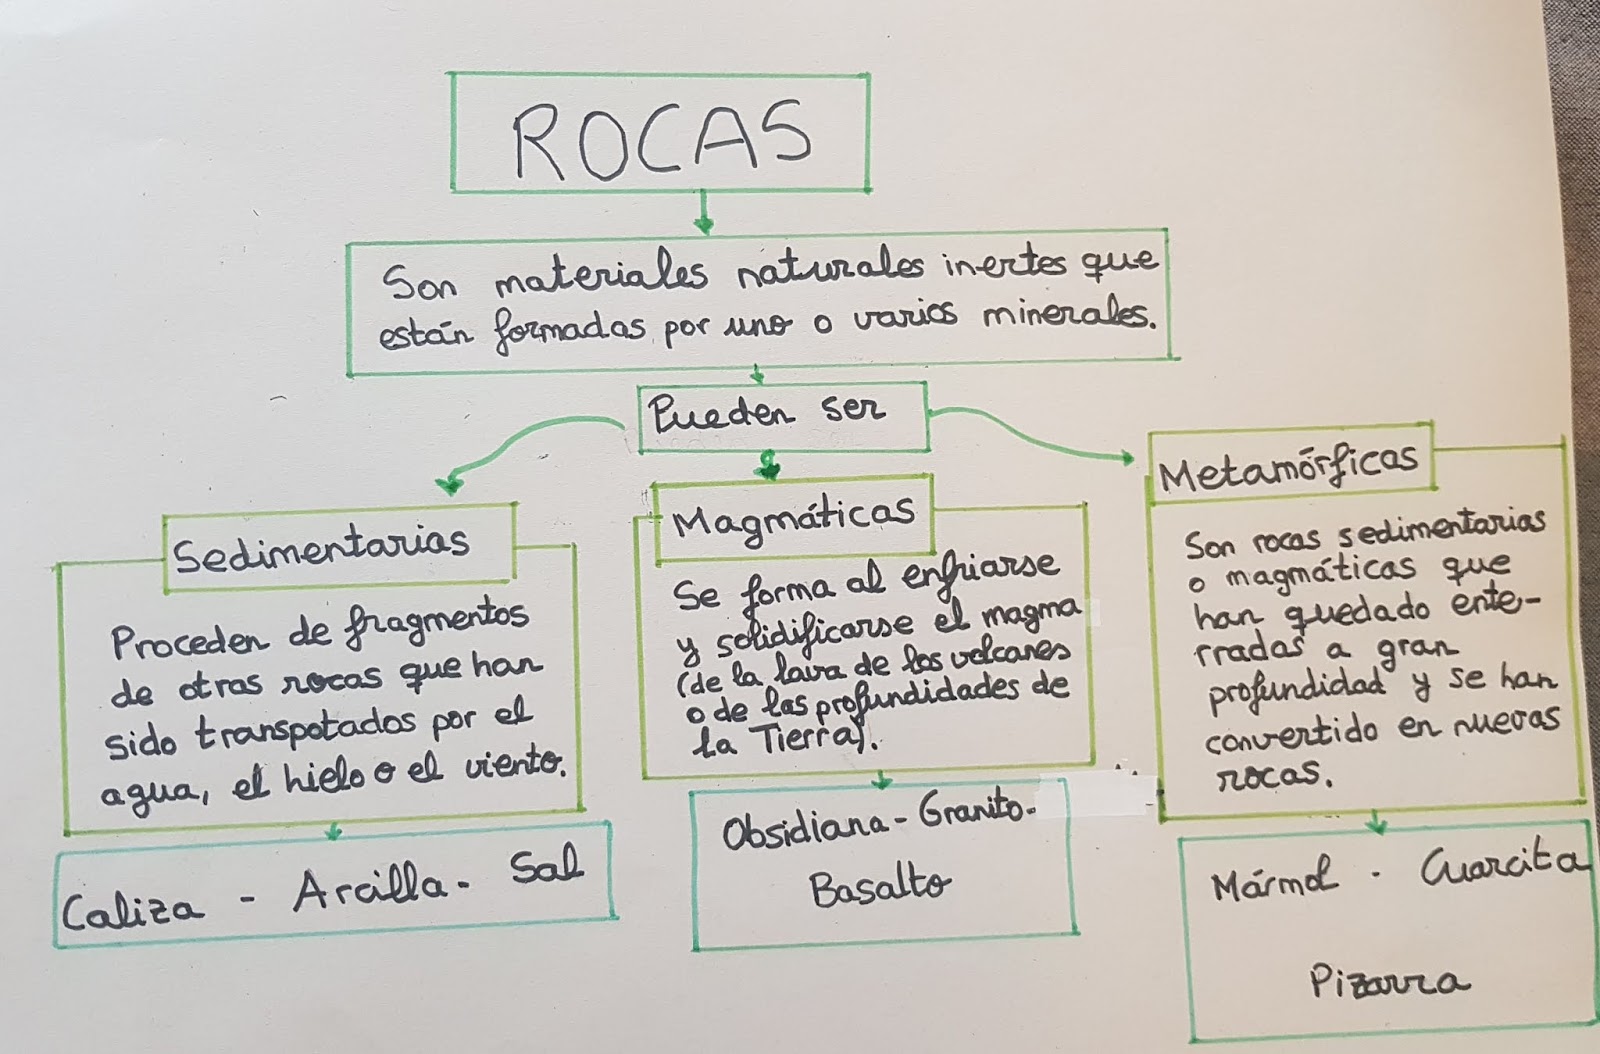 ROCAS
Son materiales naturales inertes que
están formadas por uno o varios minerales.
Pueden ser
Sedimentarias
Proceden de fragmentos
de otras rocas que han
sido transpotados por el
agua, el hielo o el viento.
Caliza - Arcilla - Sal
Magmáticas
Se forma al enfriarse
y solidificarse el magma
(de la lava de los volcanes
o de las profundidades de
la Tierra).
Obsidiana - Granito -
Basalto
Metamórficas
Son rocas sedimentarias
o magmáticas que
han quedado ente-
rradas a gran
profundidad y se han
convertido en nuevas
rocas.
Mármol - Cuarcita
Pizarra